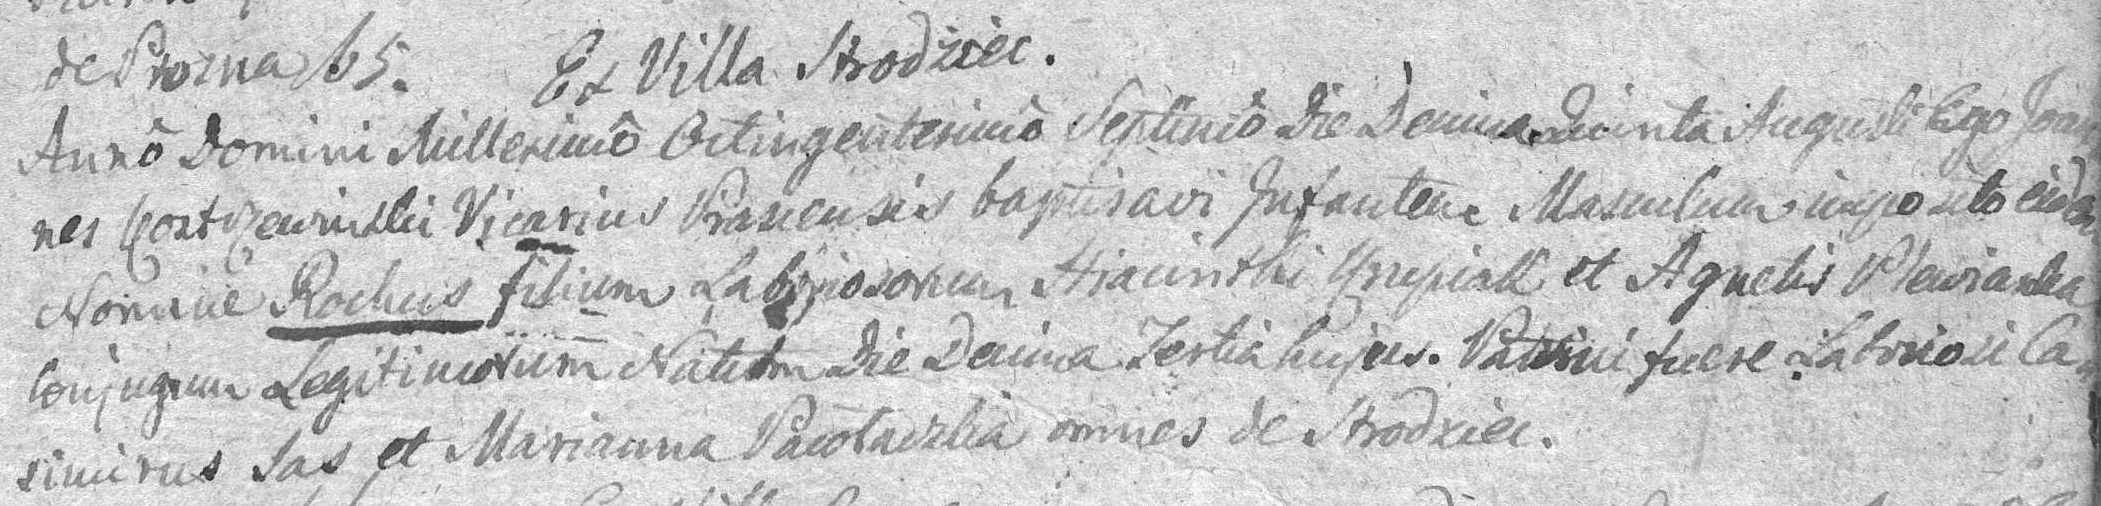 de Proma 65. Ex Villa Strodziec.
Annô Domini Millesimô Octingentesimô Septimô Die Decima Quinta Augusti Ego Joan
nes Vicarius baptisavi Infantem Masculum imposito eidem
Nomine Rochus filium Laboriosorum Hiacinthi et Agnetis
Conjugum Legitimorum Natum Die Decima Tertia hujus. Patrini fuere Laboriosi Ca
simirus Sas et Marianna omnes de Strodziec.